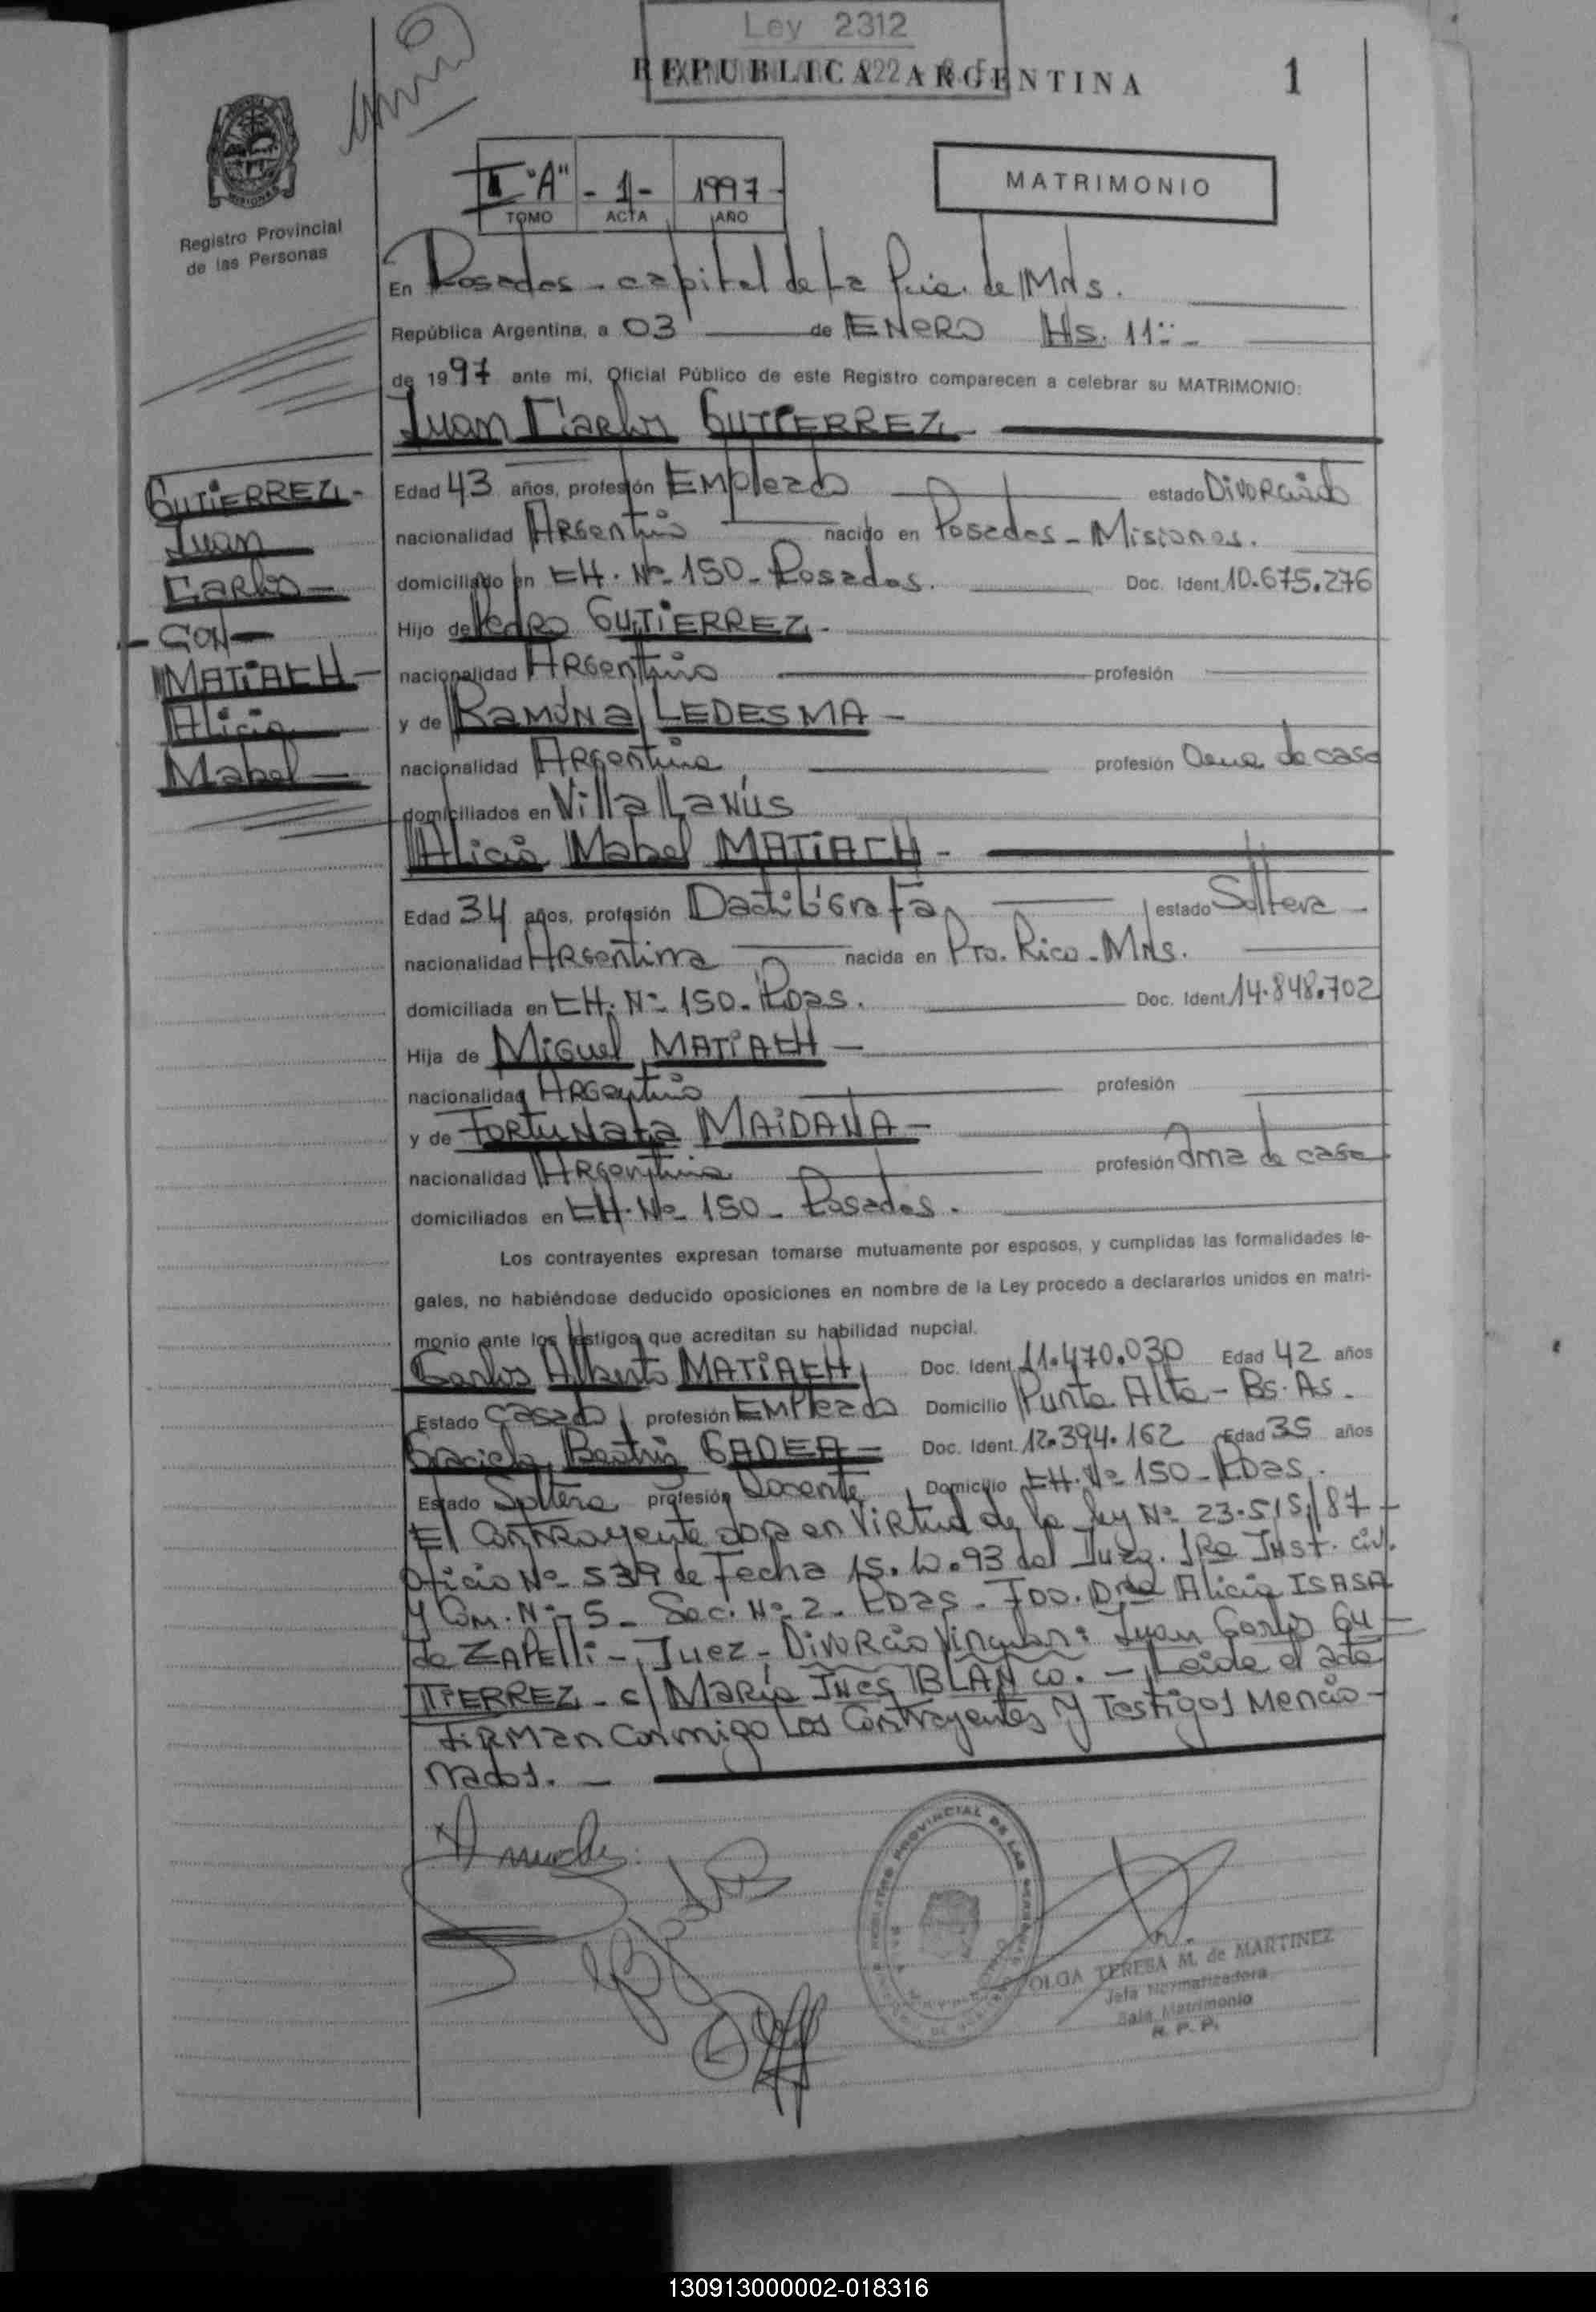 Ley 2312
REPUBLICA ARGENTINA
1
MISIONES
Registro Provincial
de las Personas
"A" - 1 - 1997 -
TOMO ACTA AÑO
MATRIMONIO
En Posadas - capital de la Pcia. de Mns.
República Argentina, a 03 de ENERO Hs. 11:: -
de 1997 ante mí, Oficial Público de este Registro comparecen a celebrar su MATRIMONIO:
Juan Carlos GUTIERREZ -
GUTIERREZ -
Juan
Carlos -
- CON -
MATIACH -
Alicia
Mabel -
Edad 43 años, profesión Empleado estado Divorciado
nacionalidad Argentino nacido en Posadas - Misiones.
domiciliado en CH. Nº 150 - Posadas. Doc. Ident. 10.675.276
Hijo de Pedro GUTIERREZ -
nacionalidad Argentino profesión
y de Ramona LEDESMA -
nacionalidad Argentina profesión Ama de casa
domiciliados en Villa Lanús
Alicia Mabel MATIACH -
Edad 34 años, profesión Dactilógrafa estado Soltera -
nacionalidad Argentina nacida en Pto. Rico - Mns.
domiciliada en CH. Nº 150 - Pdas. Doc. Ident. 14.848.702
Hija de Miguel MATIACH -
nacionalidad Argentino profesión
y de Fortunata MAIDANA -
nacionalidad Argentina profesión Ama de casa
domiciliados en CH. Nº 150 - Posadas.
Los contrayentes expresan tomarse mutuamente por esposos, y cumplidas las formalidades le-
gales, no habiéndose deducido oposiciones en nombre de la Ley procedo a declararlos unidos en matri-
monio ante los testigos que acreditan su habilidad nupcial.
Carlos Alberto MATIACH, Doc. Ident. 11.470.030 Edad 42 años
Estado Casado, profesión Empleado Domicilio Punta Alta - Bs. As.
Graciela Beatriz GADEA - Doc. Ident. 12.394.162 Edad 35 años
Estado Soltera profesión Docente Domicilio CH. Nº 150 - Pdas.
El contrayente en virtud de la ley Nº 23.515/87 -
Oficio Nº 539 de Fecha 15.10.93 del Juzg. 1ra Inst. Civ.
y Com. Nº 5 - Sec. Nº 2 - Pdas - FDO. Dra Alicia ISASA
de ZAPELLI - Juez - Divorcio Vincular: Juan Carlos GU-
TIERREZ - c/ María Ines BLANCO. - Leída el acta
firman conmigo Los Contrayentes y Testigos Mencio-
nados. -
OLGA TERESA M. de MARTINEZ
Jefa Normatizadora
Sala Matrimonio
R. P. P.
130913000002-018316